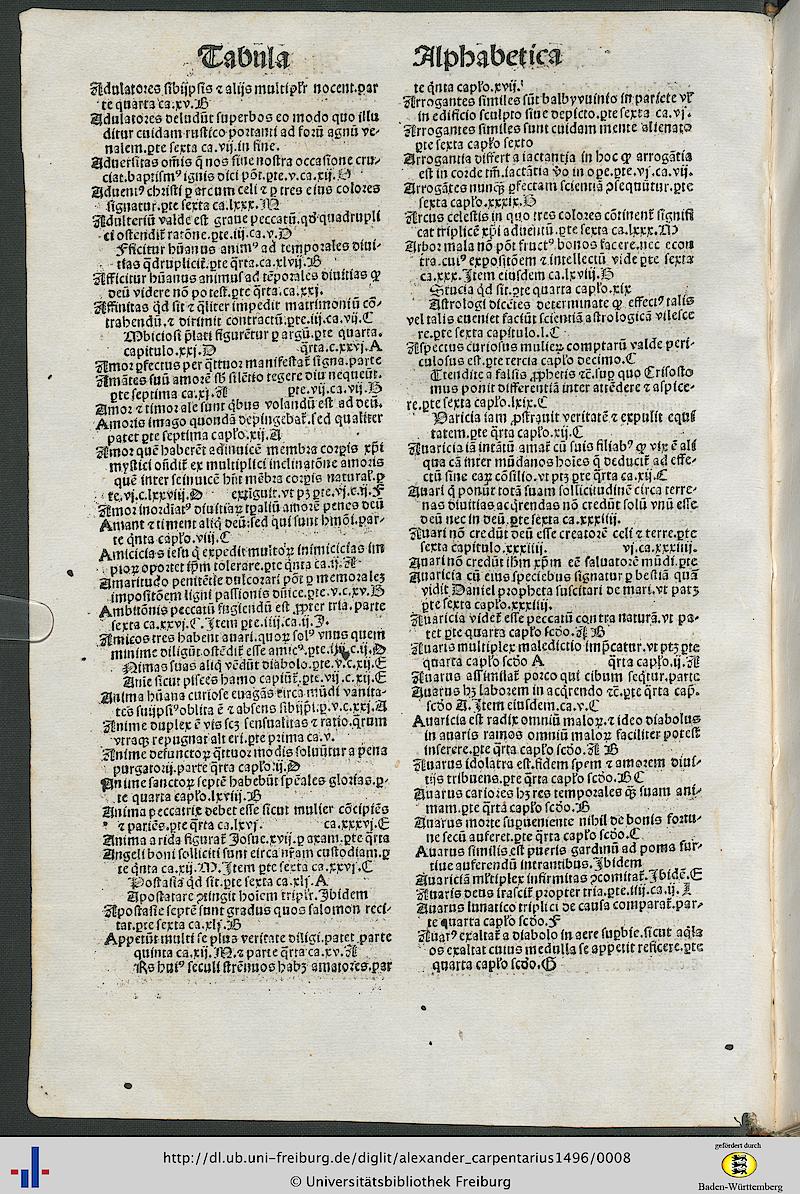 Tabula
Adulatores sibiipsis ⁊ alijs multiplr̃ nocent.par
te quarta ca.xv.B
Adulatores deludũt superbos eo modo quo illu
ditur cuidam rustico portanti ad forũ agnũ ve-
nalem.pte sexta ca.vij.in fine.
Aduersitas om̃is q̃ nos sine nostra occasione cru-
ciat.baptismꝰ ignis dici põt.pte.v.ca.xij.
Aduentꝰ christi ꝑ arcum celi ⁊ ꝑ tres eius colores
signatur.pte sexta ca.lxxx.M
Adulteriũ valde est graue peccatũ.qđ quadrupli
ci ostendit̃ ratõne.pte.iij.ca.v.D
Fficitur hũanus animꝰ ad temporales diui-
tias q̃druplicit̃.pte q̃rta.ca.xlvij.B
Afficitur hũanus animus ad tẽporales diuitias ꝙ
deũ videre nõ potest.pte q̃rta.ca.xxj.
Affinitas qđ sit ⁊ q̃liter impedit matrimoniũ cõ-
trahendũ.⁊ dirimit contractũ.pte.iij.ca.vij.C
Mbiciosi p̃lati figurẽtur ꝑ argũ.pte quarta.
capitulo.xxj.D q̃rta.c.xxvj.A
Amor ꝑfectus per q̃ttuor manifestat̃ signa.parte
Amãtes suũ amorẽ sb̃ silẽtio tegere diu nequeũt.
pte septima ca.xj.A pte.vij.ca.vij.B
Amor ⁊ timor ale sunt q̃bus volandũ est ad deũ.
Amoris imago quondã depingebat̃.sed qualiter
patet pte septima capło.xij.A
Amor quẽ haberẽt adinuicẽ membra corpis xp̃i
mystici oñdit̃ ex multiplici inclinatõne amoris
quẽ inter seinuicẽ hñt mẽbra corpis natural̃.p
te.vj.c.lxxviij.D exiguit.vt pʒ pte.vj.c.ij.F
Amor inordiatꝰ diuitiaꝝ tp̃aliũ amorẽ penes deũ
Amant ⁊ timent aliq̃ deũ:sed qui sunt hmõi.par-
te q̃nta capło.viij.C
Amicicias iesu q̃ expedit multoꝝ inimicicias im
pioꝝ oportet ip̃m tolerare.pte q̃nta ca.ij.A
Amaritudo penitẽtie dulcorari põt ꝑ memoralez
impositõem ligni passionis dñice.pte.v.c.xv.B
Ambitõnis peccatũ fugiendũ est ꝓpter tria.parte
sexta ca.xxvj.C.Item pte.iiij.ca.ij.J.
Amicos tres habent auari.quoꝝ solꝰ vnus quem
minime diligũt.ostẽdit̃ esse amicꝰ.pte.iij.c.ij.D
Nimas suas aliq̃ vẽdũt diabolo.pte.v.c.xij.E
Anie sicut pisces hamo capiũt̃.pte.vij.c.xij.E
Anima hũana curiose euagãs circa mũdi vanita-
tes suijpsiꝰ oblita ẽ ⁊ absens sibijp̃i.p.v.c.xxj.A
Anime duplex ẽ vis scʒ sensualitas ⁊ ratio.q̃rum
vtraqʒ repugnat alteri.pte prima ca.v.
Anime defunctoꝝ q̃ttuor modis soluũtur a pena
purgatorij.parte q̃rta capło.ij.D
Anime sanctoꝝ septẽ habebũt sp̃eales glorias.p-
te quarta capło.lxviij.B
Anima peccatrix debet esse sicut mulier cõcipiẽs
⁊ pariẽs.pte q̃rta ca.lxvj. ca.xxxvj.E
Anima arida figurat̃ Josue.xvij.p axam.pte q̃rta
Angeli boni solliciti sunt circa nr̃am custodiam.p
te q̃nta ca.xij.M.Item pte sexta ca.xxvj.C
Postasia qđ sit.pte sexta ca.xlj.A
Apostatare ꝯtingit hoiem tripłr.Ibidem
Apostasie septẽ sunt gradus quos salomon reci-
tat.pte sexta ca.xlj.B
Appetũt multi se plus veritate diligi.patet parte
quinta ca.xij.M.⁊ parte q̃rta ca.xv.A
Rs huiꝰ seculi strẽnuos habʒ amatores.par
Alphabetica
te q̃nta capło.xvij.
Arrogantes similes sũt balbyuuinio in pariete vł
in edificio sculpto siue depicto.pte sexta ca.vj.
Arrogantes similes sunt cuidam mente alienato
pte sexta capło sexto
Arrogantia differt a iactantia in hoc ꝙ arrogãtia
est in corde tm̃.iactãtia ṽo in ope.pte.vj.ca.vij.
Arrogãtes nunqʒ ꝑfectam scientiã ꝯsequũtur.pte
sexta capło.xxxix.B
Arcus celestis in quo tres colores cõtinent̃ signifi
cat triplicẽ xp̃i aduentũ.pte sexta ca.lxxx.M
Arbor mala nõ põt fructꝰ bonos facere.nec econ
tra.cuiꝰ expositõem ⁊ intellectũ vide pte sexta
ca.xxx.Item eiusdem ca.lxviij.B
Stucia qđ sit.pte quarta capło.xix
Astrologi dicẽtes determinate ꝙ effectꝰ talis
vel talis eueniet faciũt scientiã astrologicã vilesce
re.pte sexta capitulo.l.C
Aspectus curiosus mulieꝝ comptarũ valde peri-
culosus est.pte tercia capło decimo.C
Ttendite a falsis ꝓphetis ⁊c̃.suꝑ quo Crisosto
mus ponit differentiã inter attẽdere ⁊ aspice-
re.pte sexta capło.lxix.C
Uaricia iam ꝓstrauit veritatẽ ⁊ expulit equi
tatem.pte q̃rta capło.xij.C
Auaricia iã intãtũ amat̃ cũ suis filiabꝰ ꝙ vix ẽ ali
qua cã inter mũdanos hoĩes q̃ deducit̃ ad effe-
ctũ sine eaꝝ cõsilio.vt ptʒ pte q̃rta ca.xij.C
Auari q̃ ponũt totã suam sollicitudinẽ circa terre-
nas diuitias acq̃rendas nõ credũt solũ vnũ esse
deũ nec in deũ.pte sexta ca.xxxiiij.
Auari nõ credũt deũ esse creatorẽ celi ⁊ terre.pte
sexta capitulo.xxxiiij. vj.ca.xxxiiij.
Auari nõ credũt ihm̃ xp̃m eẽ saluatorẽ mũdi.pte
Auaricia cũ eius speciebus signatur ꝑ bestiã quã
vidit Daniel propheta suscitari de mari.vt patʒ
pte sexta capło.xxxiij.
Auaricia videt̃ esse peccatũ contra naturã.vt pa-
tet pte quarta capło scđo.A B
Auaris multiplex maledictio imp̃catur.vt ptʒ pte
quarta capło scđo A q̃rta capło.ij.A
Auarus assimilat̃ porco qui cibum seq̃tur.parte
Auarus hʒ laborem in acq̃rendo ⁊c̃.pte q̃rta cap̃.
scđo A.Item eiusdem.ca.v.C
Auaricia est radix omniũ maloꝝ.⁊ ideo diabolus
in auaris ramos omniũ maloꝝ faciliter potest
inserere.pte q̃rta capło scđo.A B
Auarus idolatra est.fidem spem ⁊ amorem diui-
tijs tribuens.pte q̃rta capło scđo.B C
Auarus cariores hʒ res temporales qʒ suam ani-
mam.pte q̃rta capło scđo.B
Auarus morte superueniente nihil de bonis fortu-
ne secũ auferet.pte q̃rta capło scđo.C
Auarus similis est pueris gardinũ ad poma fur-
tiue auferendũ intrantibus.Ibidem
Auariciã multiplex infirmitas ꝯcomitat̃.Ibidẽ.E
Auaris deus irascit̃ propter tria.pte.iiij.ca.ij.J
Auarus lunatico triplici de causa comparat̃.par-
te quarta capło scđo.F
Auarꝰ exaltat̃ a diabolo in aere supbie.sicut aq̃la
os exaltat cuius medulla se appetit reficere.pte
quarta capło scđo.G
http://dl.ub.uni-freiburg.de/diglit/alexander_carpentarius1496/0008
© Universitätsbibliothek Freiburg
gefördert durch
Baden-Württemberg